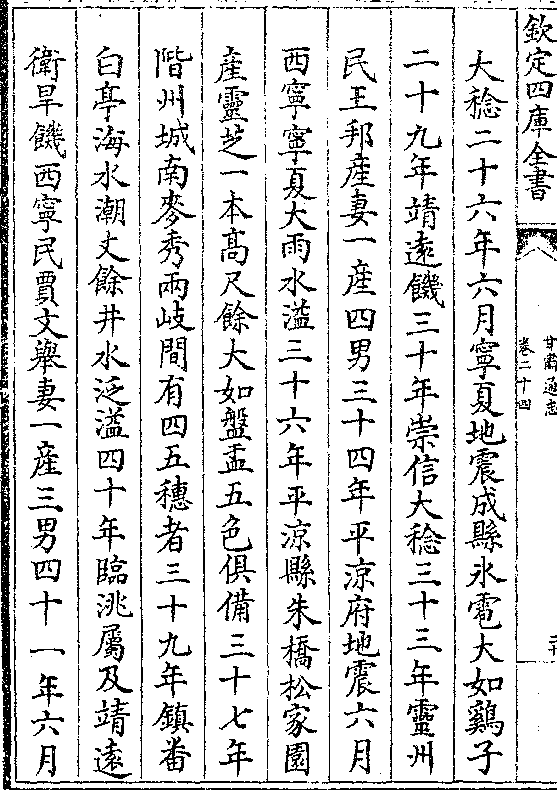 欽定四庫全書
甘肅通志
卷二十四
大稔二十六年六月寧夏地震成縣氷雹大如鷄子
二十九年靖遠饑三十年崇信大稔三十三年靈州
民王邦産妻一産四男三十四年平凉府地震六月
西寧寧夏大雨水溢三十六年平凉縣朱橋松家園
産靈芝一本髙尺餘大如盤盂五色俱備三十七年
階州城南麥秀兩岐間有四五穗者三十九年鎮番
白亭海水潮丈餘井水泛溢四十年臨洮屬及靖遠
衛旱饑西寧民賈文舉妻一産三男四十一年六月